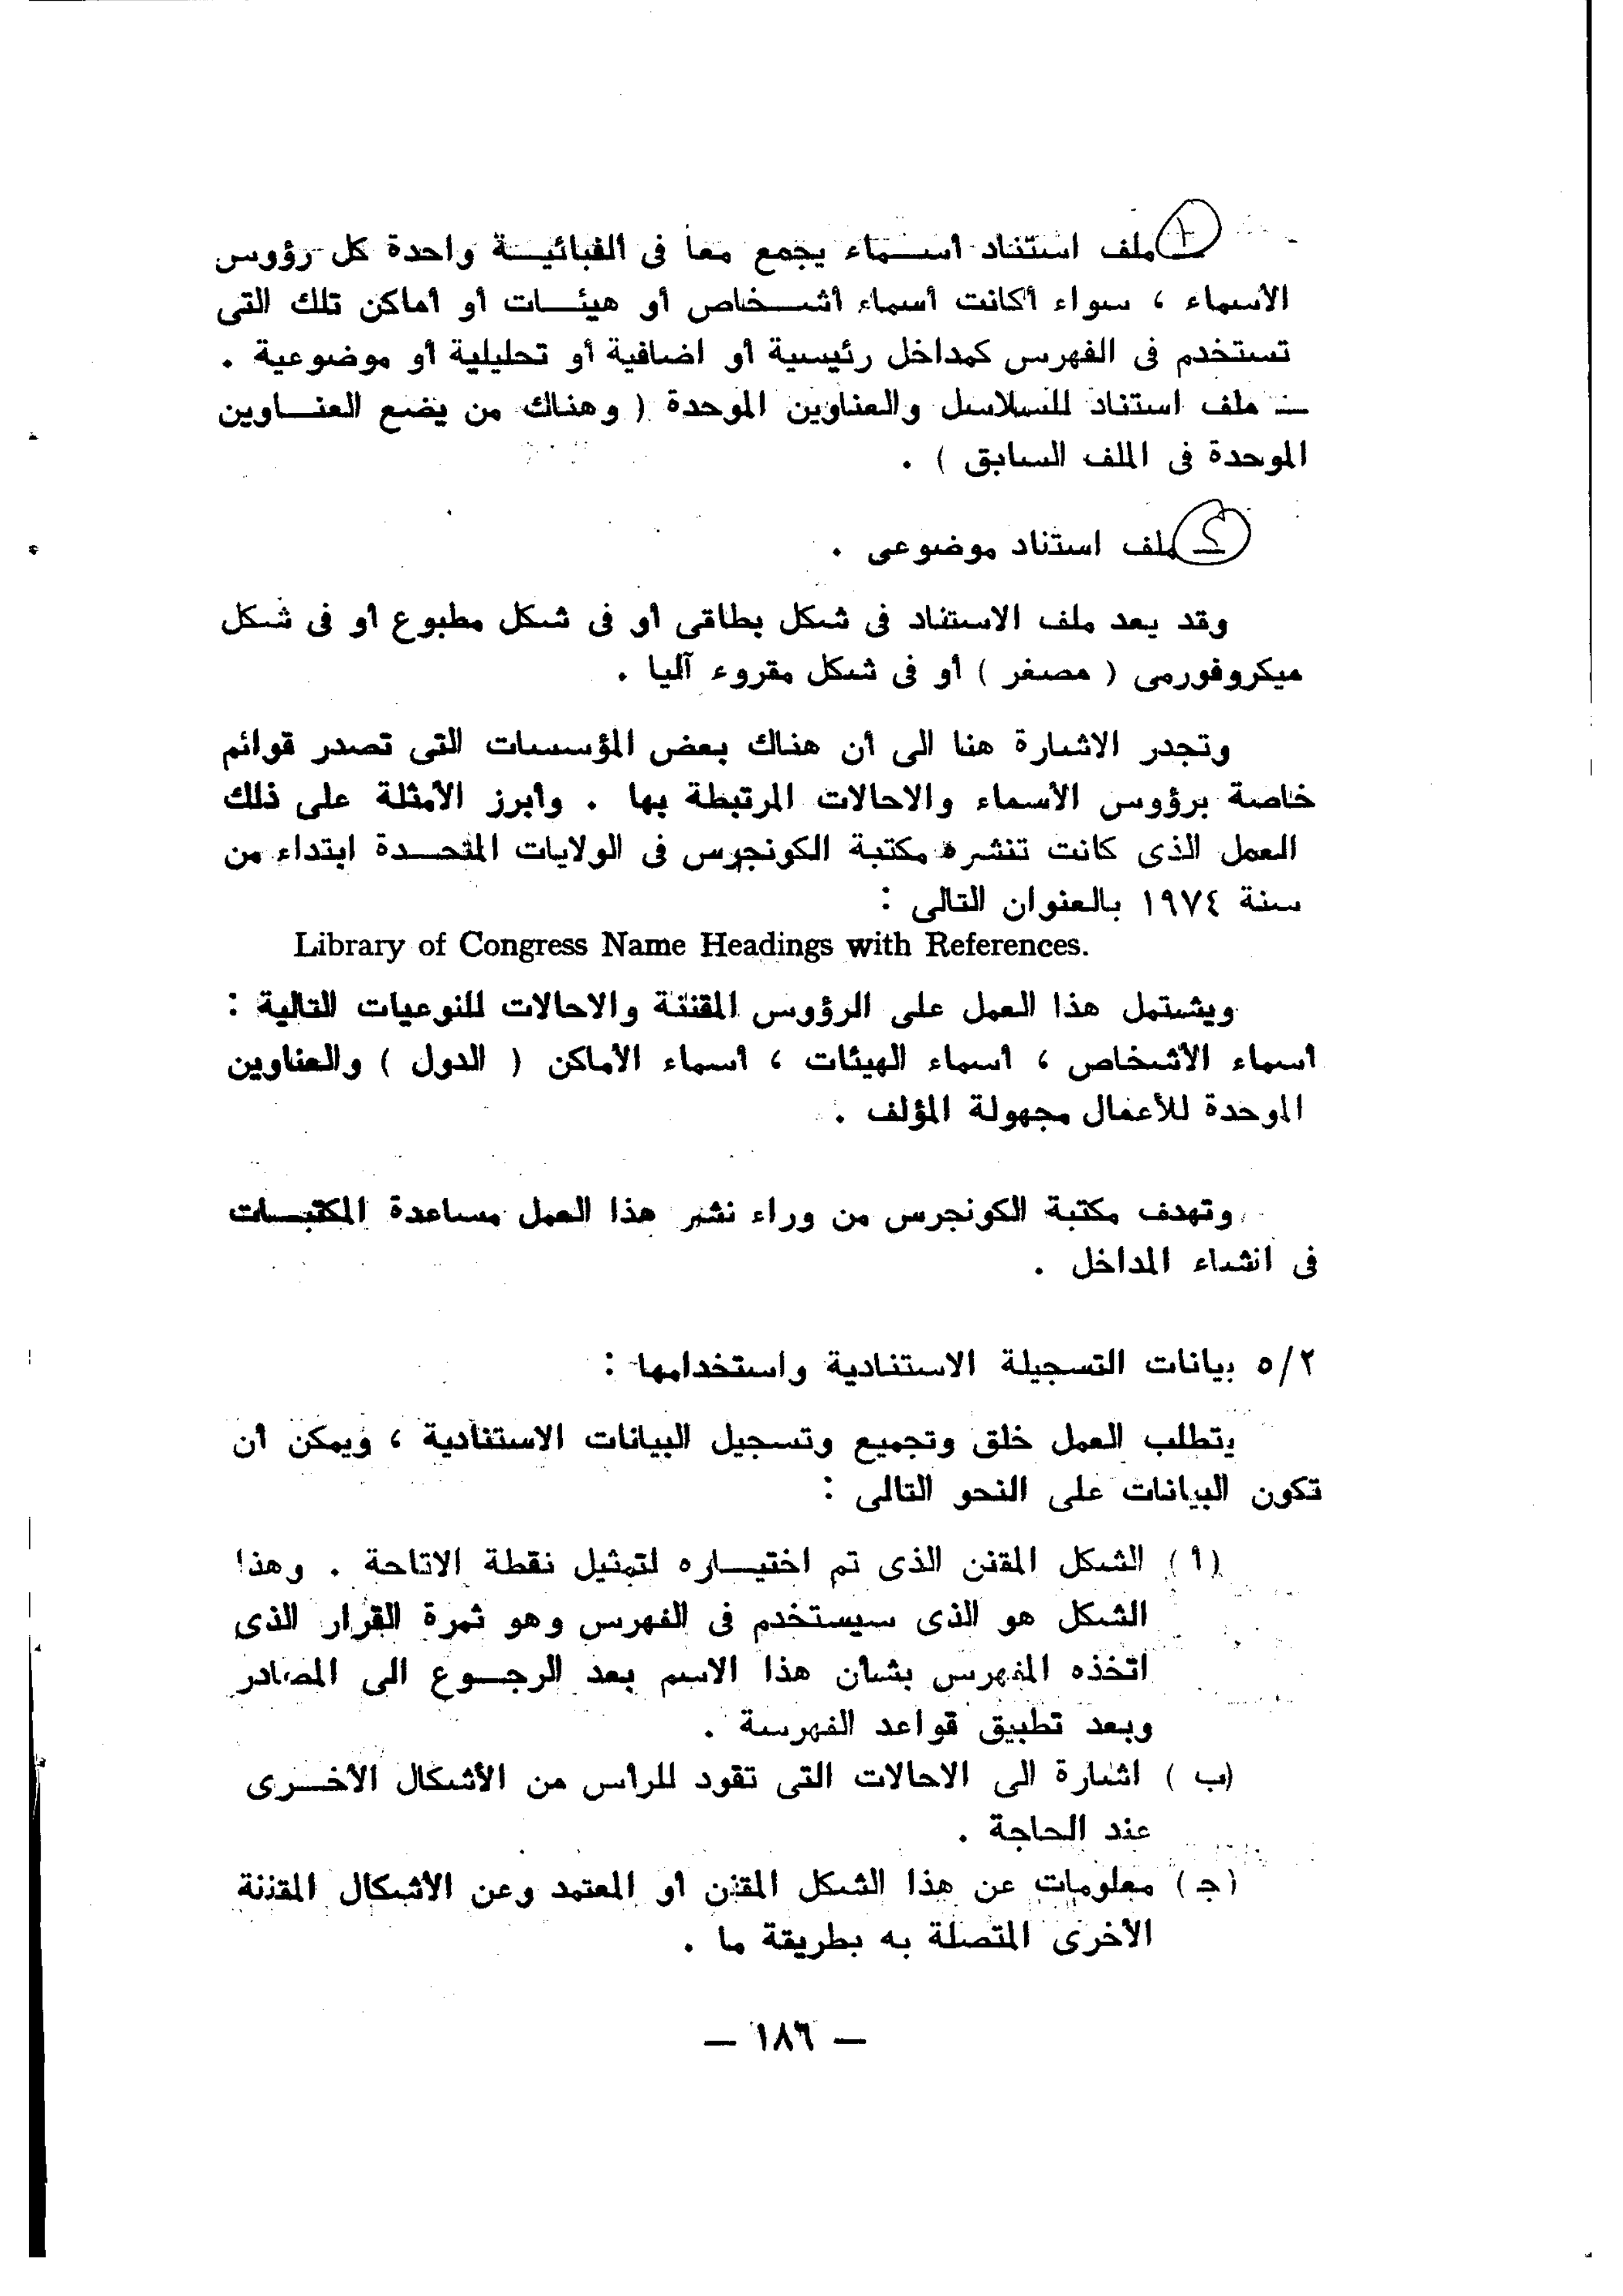 ١ ملف استناد أسماء يجمع معا فى ألفبائية واحدة كل رؤوس
الأسماء ، سواء أكانت أسماء أشخاص أو هيئات أو أماكن تلك التى
تستخدم فى الفهرس كمداخل رئيسية أو اضافية أو تحليلية أو موضوعية .
— ملف استناد للسلاسل والعناوين الموحدة ( وهناك من يضع العناوين
الموحدة فى الملف السابق ) .
٢ ملف استناد موضوعى .
وقد يعد ملف الاستناد فى شكل بطاقى أو فى شكل مطبوع أو فى شكل
ميكروفورمى ( مصغر ) أو فى شكل مقروء آليا .
وتجدر الاشارة هنا الى أن هناك بعض المؤسسات التى تصدر قوائم
خاصة برؤوس الأسماء والاحالات المرتبطة بها . وأبرز الأمثلة على ذلك
العمل الذى كانت تنشره مكتبة الكونجرس فى الولايات المتحدة ابتداء من
سنة ١٩٧٤ بالعنوان التالى :
Library of Congress Name Headings with References.
ويشتمل هذا العمل على الرؤوس المقننة والاحالات للنوعيات التالية :
أسماء الأشخاص ، أسماء الهيئات ، أسماء الأماكن ( الدول ) والعناوين
الموحدة للأعمال مجهولة المؤلف .
وتهدف مكتبة الكونجرس من وراء نشر هذا العمل مساعدة المكتبات
فى انشاء المداخل .
٥/٢ بيانات التسجيلة الاستنادية واستخدامها :
يتطلب العمل خلق وتجميع وتسجيل البيانات الاستنادية ، ويمكن أن
تكون البيانات على النحو التالى :
(أ) الشكل المقنن الذى تم اختياره لتمثيل نقطة الاتاحة . وهذا
الشكل هو الذى سيستخدم فى الفهرس وهو ثمرة القرار الذى
اتخذه المفهرس بشأن هذا الاسم بعد الرجوع الى المصادر
وبعد تطبيق قواعد الفهرسة .
(ب) اشارة الى الاحالات التى تقود للرأس من الأشكال الأخرى
عند الحاجة .
(ج) معلومات عن هذا الشكل المقنن أو المعتمد وعن الأشكال المقننة
الأخرى المتصلة به بطريقة ما .
— ١٨٦ —